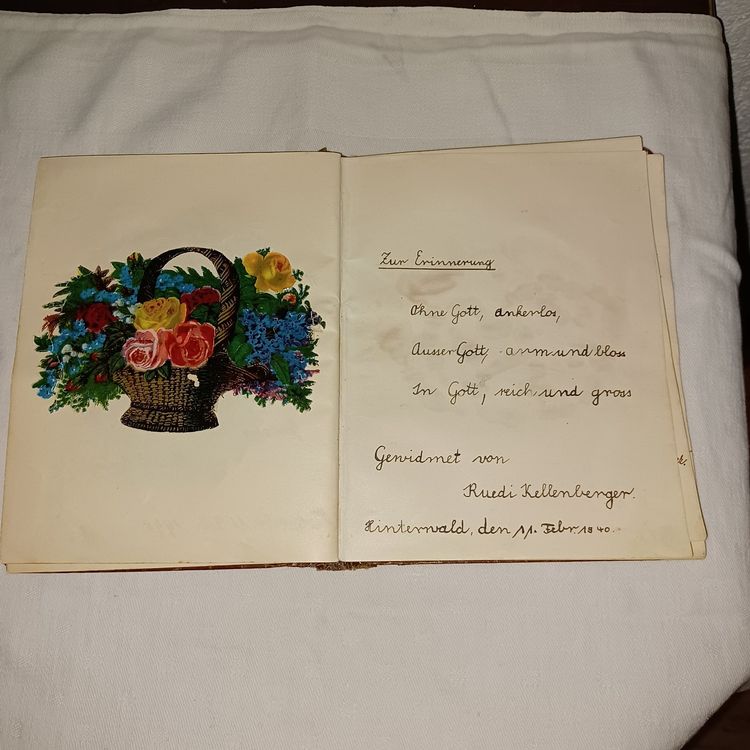 Zur Erinnerung
Ohne Gott, ankerlos,
Ausser Gott, arm und bloss
In Gott, reich und gross
Gewidmet von
Ruedi Kellenberger.
Hinterwald, den 11. Febr. 1940.